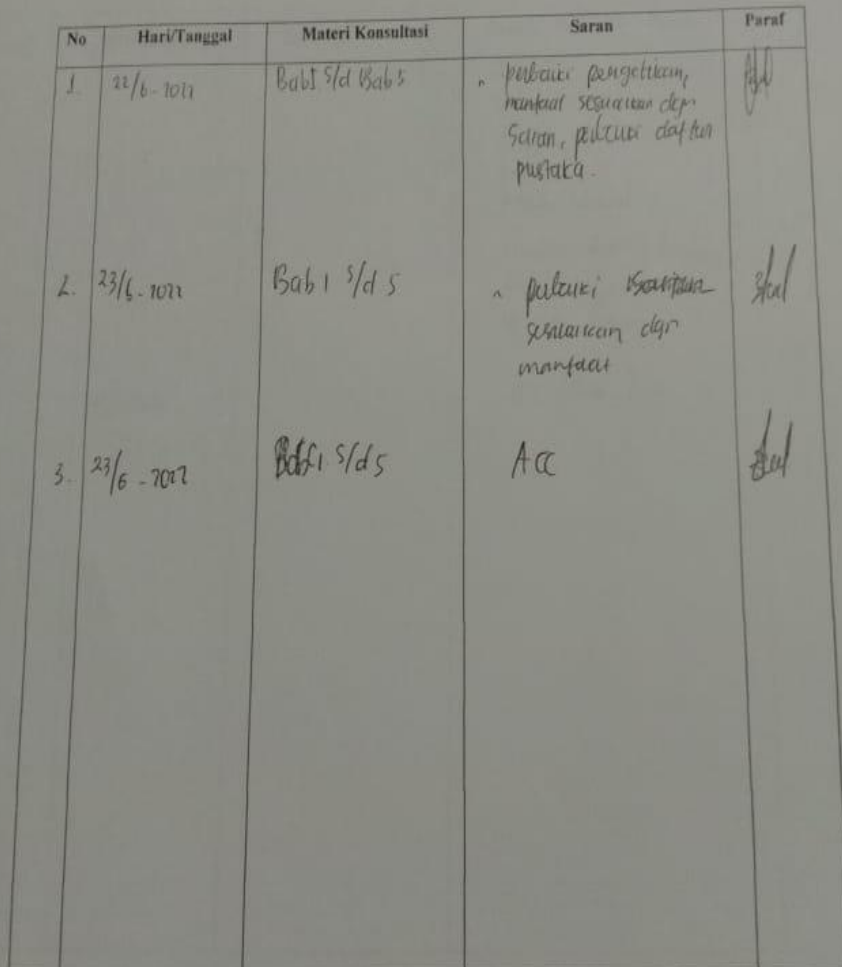 No Hari/Tanggal Materi Konsultasi Saran Paraf
1. 22/6-2022 Bab I s/d Bab 5 perbaiki pengetikan,
manfaat sesuaikan dgn
Saran, perbaiki daftar
pustaka.
2. 23/6-2022 Bab 1 s/d 5 perbaiki
sesuaikan dgn
manfaat
3. 23/6-2022 Bab 1 s/d 5 ACC